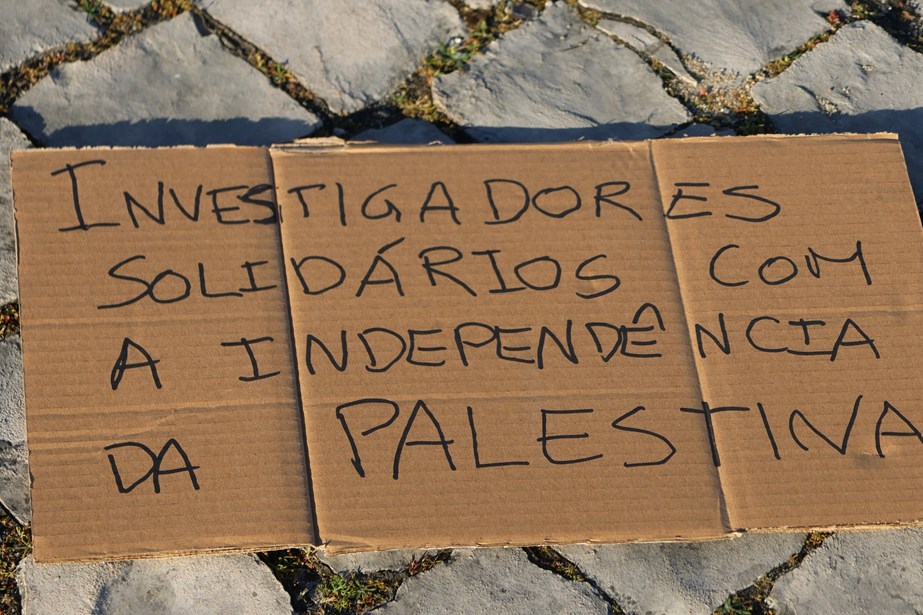 INVESTIGADORES
SOLIDÁRIOS COM
A INDEPENDÊNCIA
DA PALESTINA